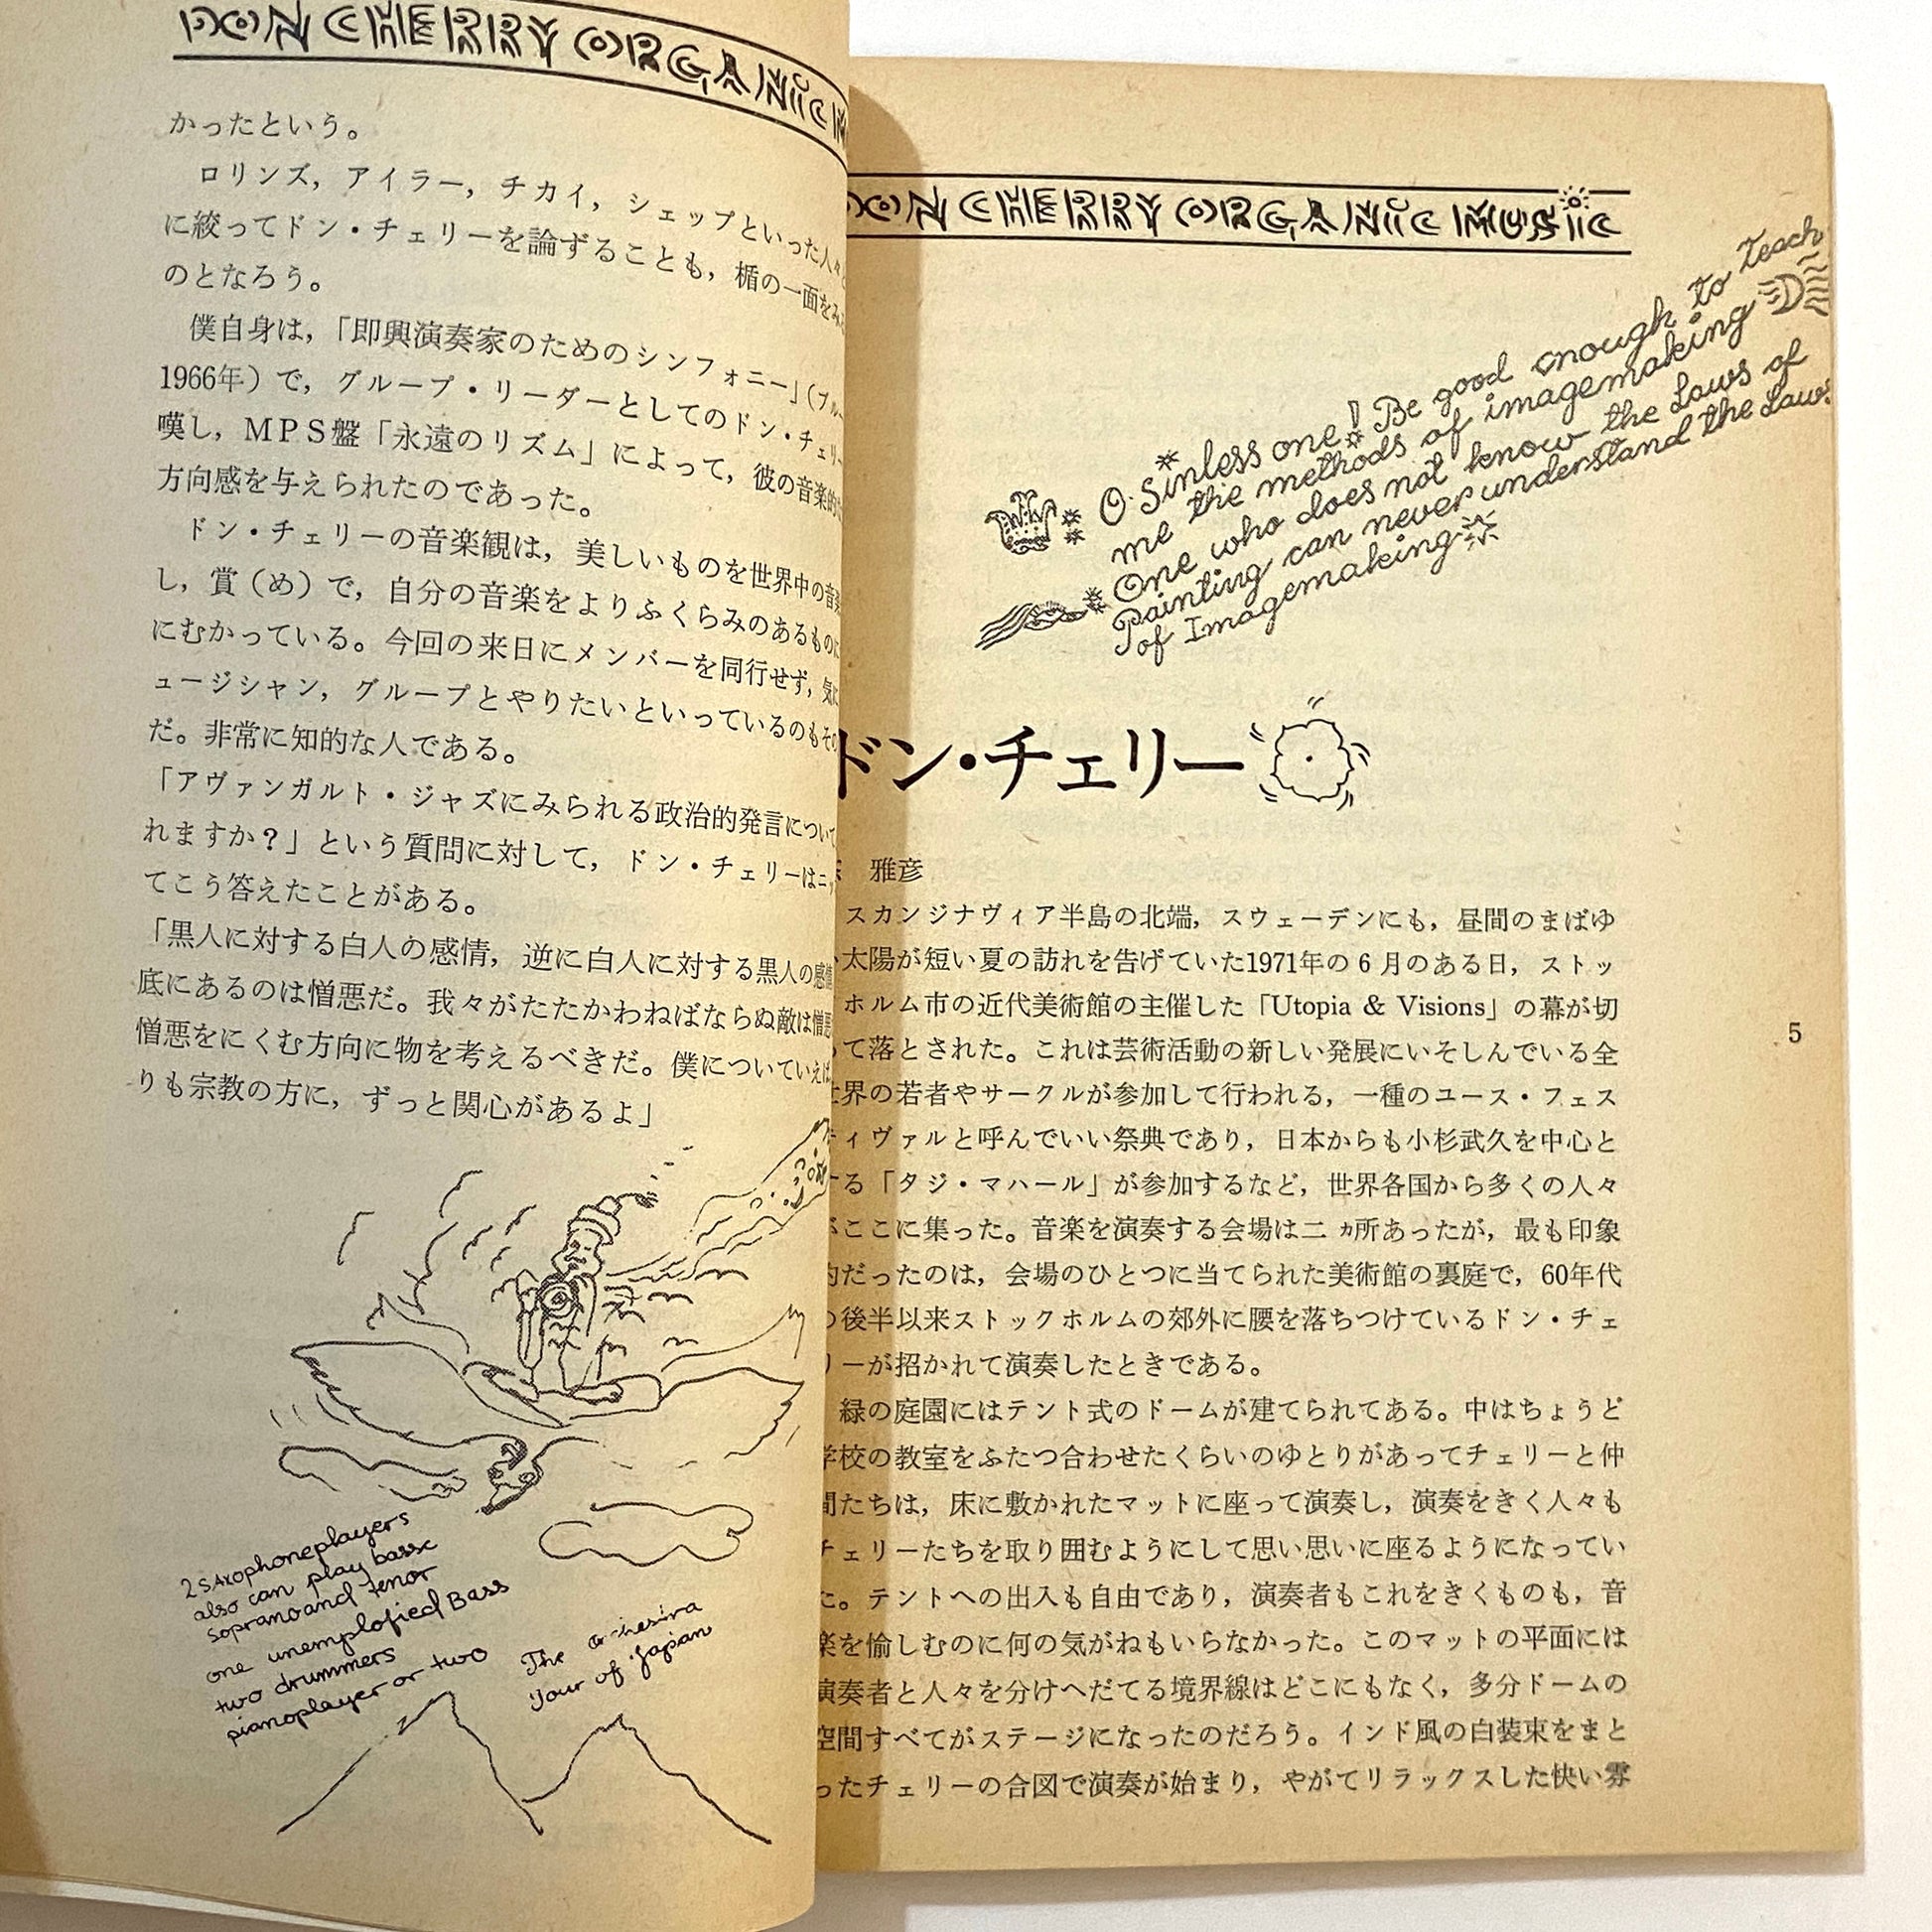 DON CHERRY ORGANIC M
かったという。
ロリンズ，アイラー，チカイ，シェップといった人々と
に絞ってドン・チェリーを論ずることも，楯の一面をみ
のとなろう。
僕自身は，「即興演奏家のためのシンフォニー」（ブルー
1966年）で，グループ・リーダーとしてのドン・チェリー
嘆し，ＭＰＳ盤「永遠のリズム」によって，彼の音楽的
方向感を与えられたのであった。
ドン・チェリーの音楽観は，美しいものを世界中の音楽
し，賞（め）で，自分の音楽をよりふくらみのあるものに
にむかっている。今回の来日にメンバーを同行せず，気に
ュージシャン，グループとやりたいといっているのもその
だ。非常に知的な人である。
「アヴァンガルト・ジャズにみられる政治的発言について
れますか？」という質問に対して，ドン・チェリーはニッ
てこう答えたことがある。
「黒人に対する白人の感情，逆に白人に対する黒人の感情
底にあるのは憎悪だ。我々がたたかわねばならぬ敵は憎悪
憎悪をにくむ方向に物を考えるべきだ。僕についていえば
りも宗教の方に，ずっと関心があるよ」
2 saxophoneplayers
also can play basse
soprano and tenor
one unemplofied Bass
two drummers
pianoplayer or two
The orchestra
your of Japan
DON CHERRY ORGANIC MUSIC
O Sinless one! Be good enough to teach
me the methods of imagemaking
One who does not know the Laws of
Painting can never understand the Laws
of Imagemaking
ドン・チェリー
雅彦
スカンジナヴィア半島の北端，スウェーデンにも，昼間のまばゆ
い太陽が短い夏の訪れを告げていた1971年の６月のある日，ストッ
クホルム市の近代美術館の主催した「Utopia & Visions」の幕が切
って落とされた。これは芸術活動の新しい発展にいそしんでいる全
世界の若者やサークルが参加して行われる，一種のユース・フェス
ティヴァルと呼んでいい祭典であり，日本からも小杉武久を中心と
する「タジ・マハール」が参加するなど，世界各国から多くの人々
がここに集った。音楽を演奏する会場は二ヵ所あったが，最も印象
的だったのは，会場のひとつに当てられた美術館の裏庭で，60年代
の後半以来ストックホルムの郊外に腰を落ちつけているドン・チェ
リーが招かれて演奏したときである。
緑の庭園にはテント式のドームが建てられてある。中はちょうど
学校の教室をふたつ合わせたくらいのゆとりがあってチェリーと仲
間たちは，床に敷かれたマットに座って演奏し，演奏をきく人々も
チェリーたちを取り囲むようにして思い思いに座るようになってい
た。テントへの出入も自由であり，演奏者もこれをきくものも，音
楽を愉しむのに何の気がねもいらなかった。このマットの平面には
演奏者と人々を分けへだてる境界線はどこにもなく，多分ドームの
空間すべてがステージになったのだろう。インド風の白装束をまと
ったチェリーの合図で演奏が始まり，やがてリラックスした快い雰
5